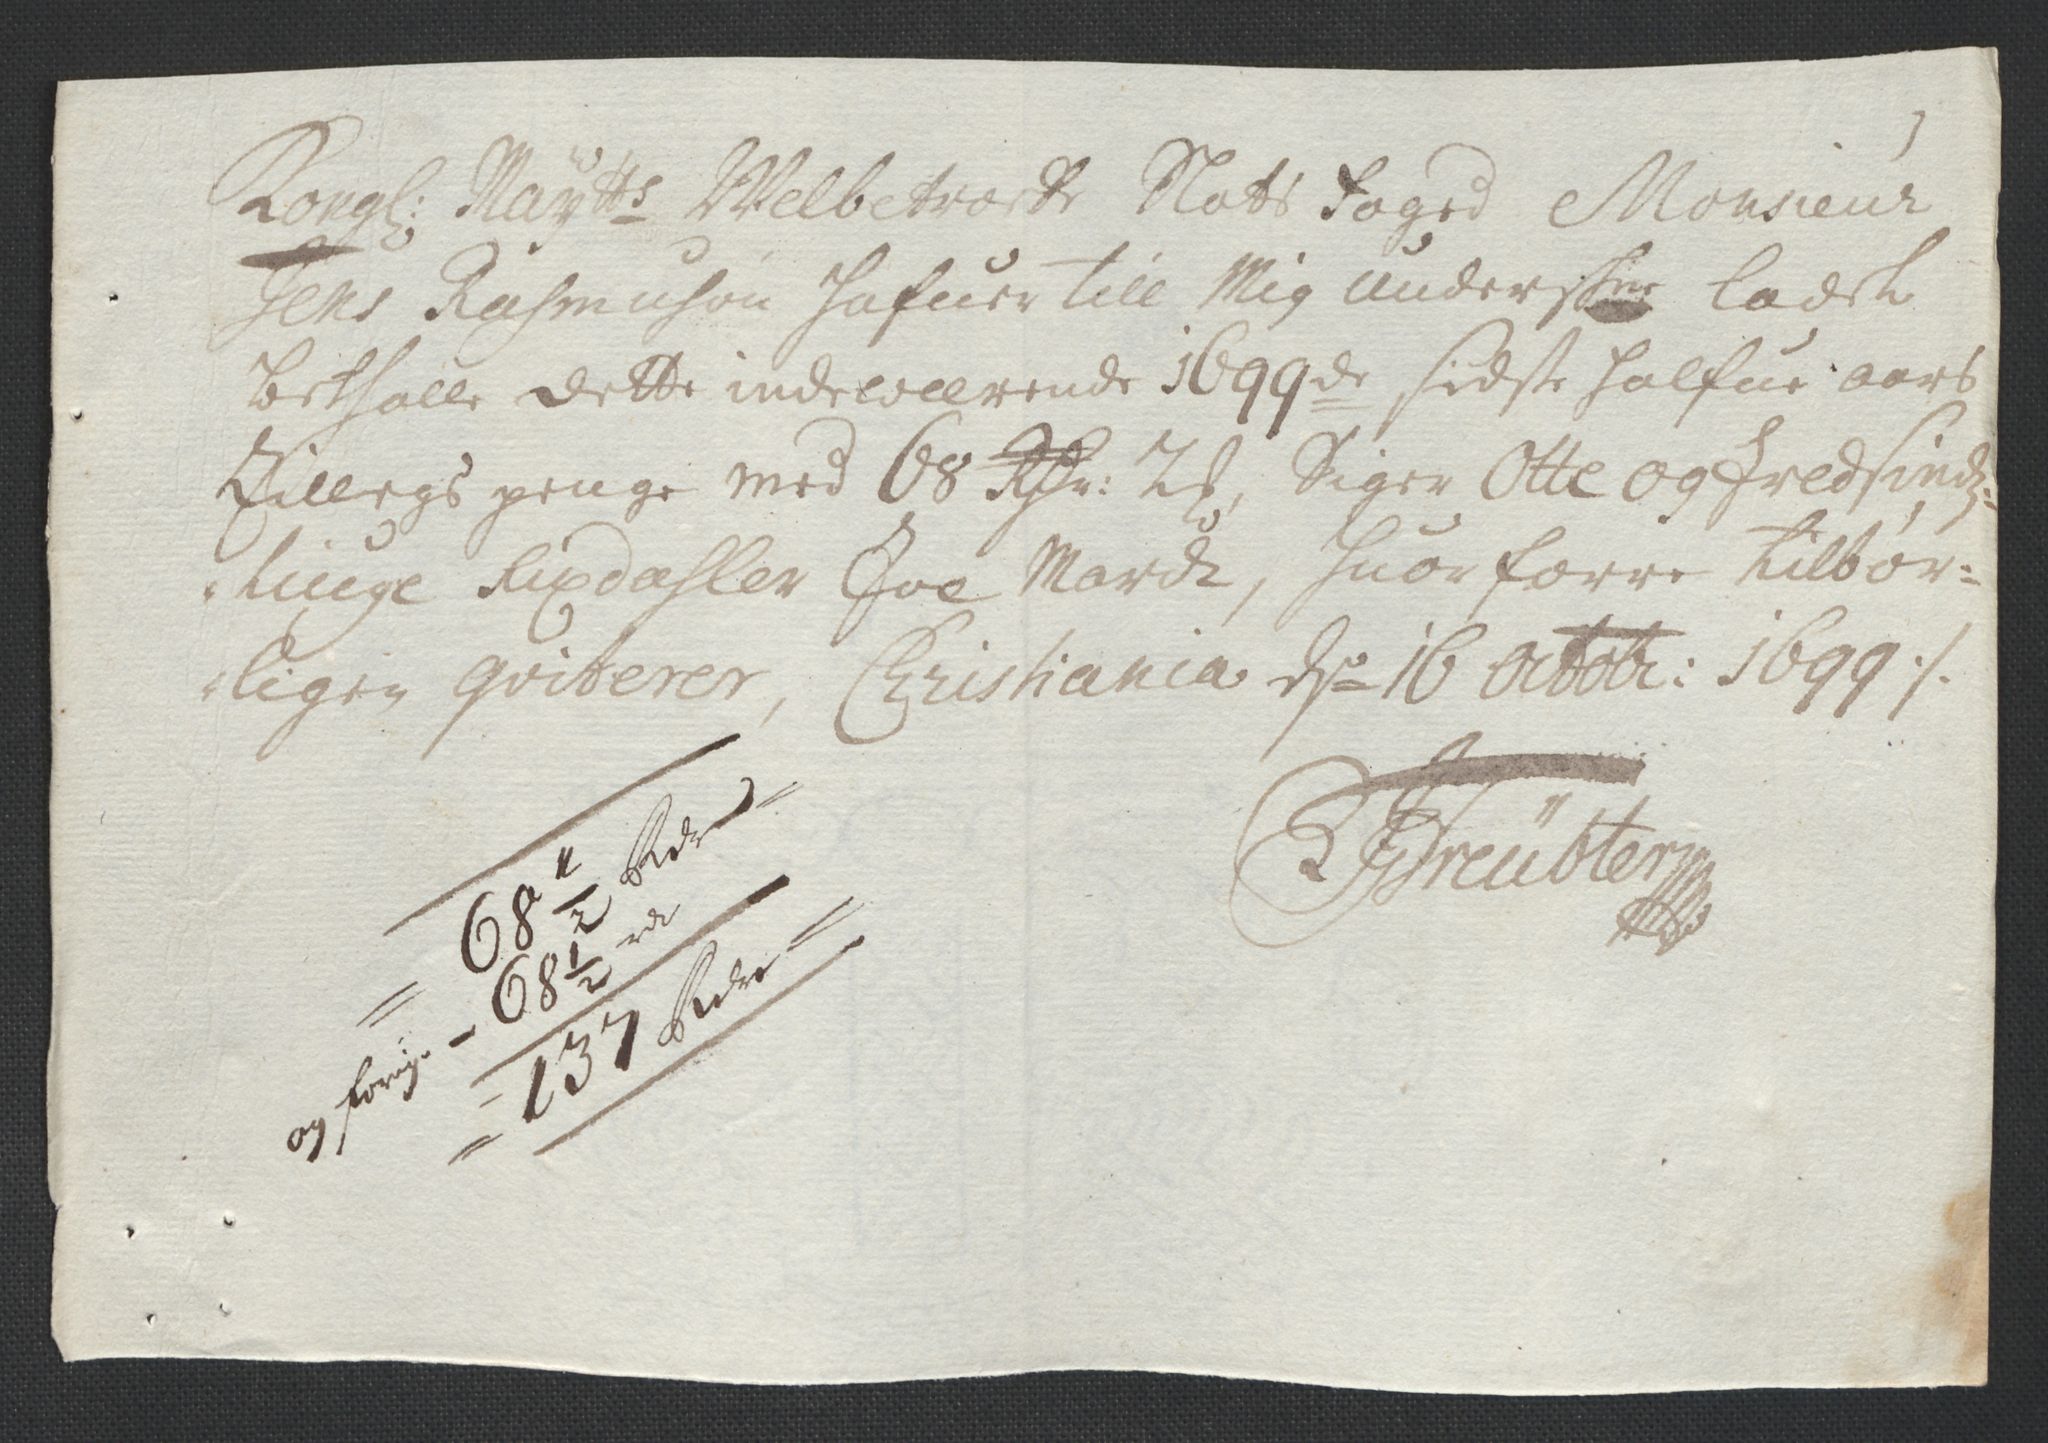 Kongl: Maÿtts Welbetroede Slots foged Monsieur
Jens Rasmuhsøn hafuer till Mig Underskrne ladet
bethalle dette indewerende 1699de sidste halfue aars
Tillegs penge med 68 Rdr: 2 &, Siger Otte og Tredsindz-
-tiuge Rixdahler Toe Mark, huorforre tilbør-
-ligen qviterer, Christiania dn 16 octobr: 1699 ./.
Greütter
68 1/2 Rdr
og forige - 68 1/2 rdr
137 Rdr